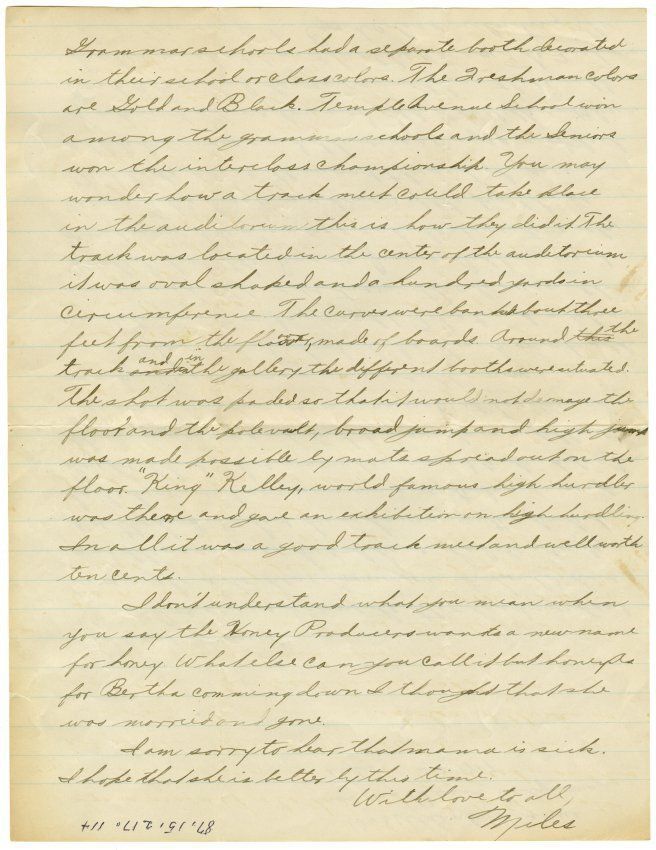 Grammar schools had a separate booth decorated
in their school or class colors. The Freshman colors
are Gold and Black. Temple Avenue School won
among the grammar schools and the Seniors
won the interclass championship. You may
wonder how a track meet could take place
in the auditorium this is how they did it. The
track was located in the center of the auditorium
it was oval shaped and a hundred yards in
circumference. The curves were banked about three
feet from the floor, made of boards. Around this the
track and in the gallery the different booths were situated.
The shot was paded so that it would not damage the
floor and the polevault, broad jump and high jump
was made possible by mats spread out on the
floor. "King" Kelley, world famous high hurdler
was there and gave an exhibition on high hurdling.
In all it was a good track meet and well worth
ten cents.
I don't understand what you mean when
you say the Honey Producers wants a new name
for honey. What else can you call it but honey? As
for Bertha comming down I thought that she
was married and gone.
I am sorry to hear that mama is sick.
I hope that she is better by this time.
With love to all,
Miles
87.15.217.114